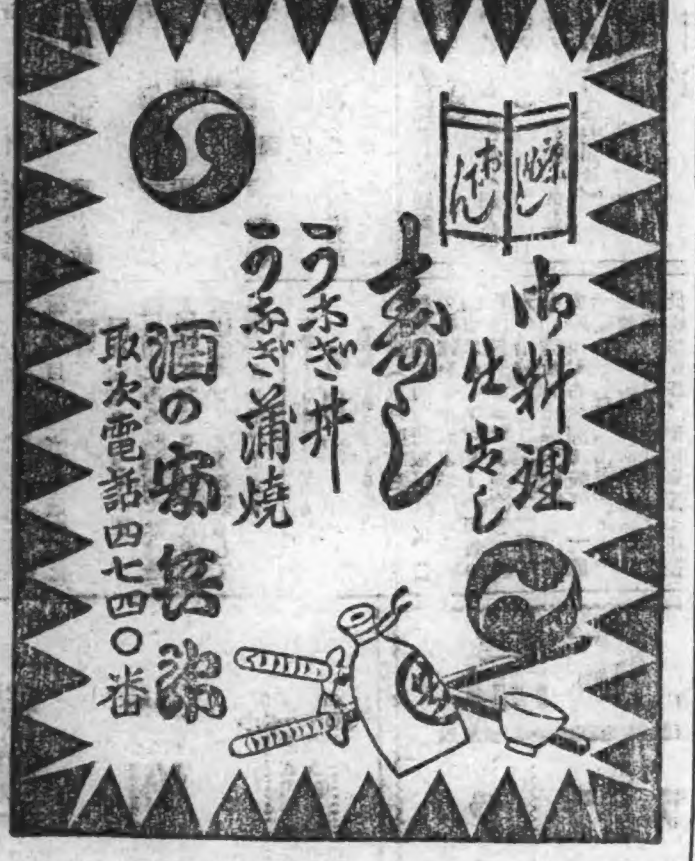 おでん
御料理
仕出し
寿し
うなぎ丼
うなぎ蒲燒
酒の安兵衛
取次電話四七四〇番